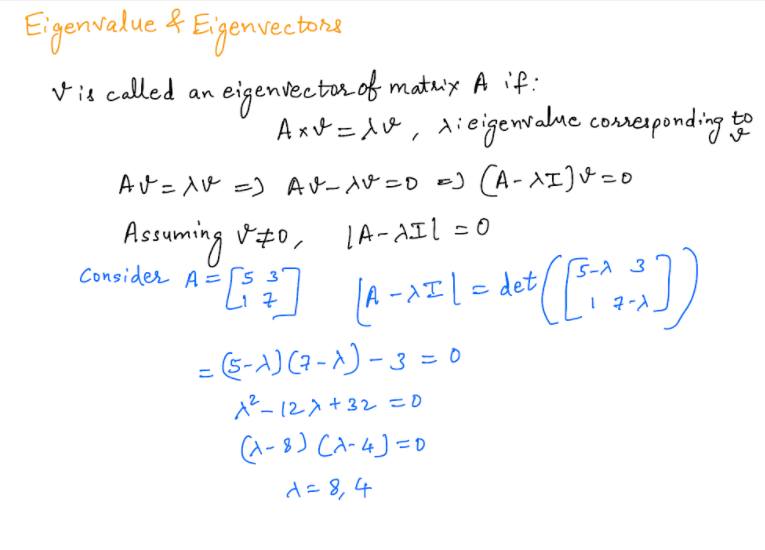 Eigenvalue & Eigenvectors
v is called an eigenvector of matrix A if:
A x v = λv , λ: eigenvalue corresponding to v
Av = λv => Av - λv = 0 => (A - λI)v = 0
Assuming v ≠ 0, |A - λI| = 0
Consider A = [5 3; 1 7] |A - λI| = det([5-λ 3; 1 7-λ])
= (5-λ)(7-λ) - 3 = 0
λ² - 12λ + 32 = 0
(λ-8)(λ-4) = 0
λ = 8, 4